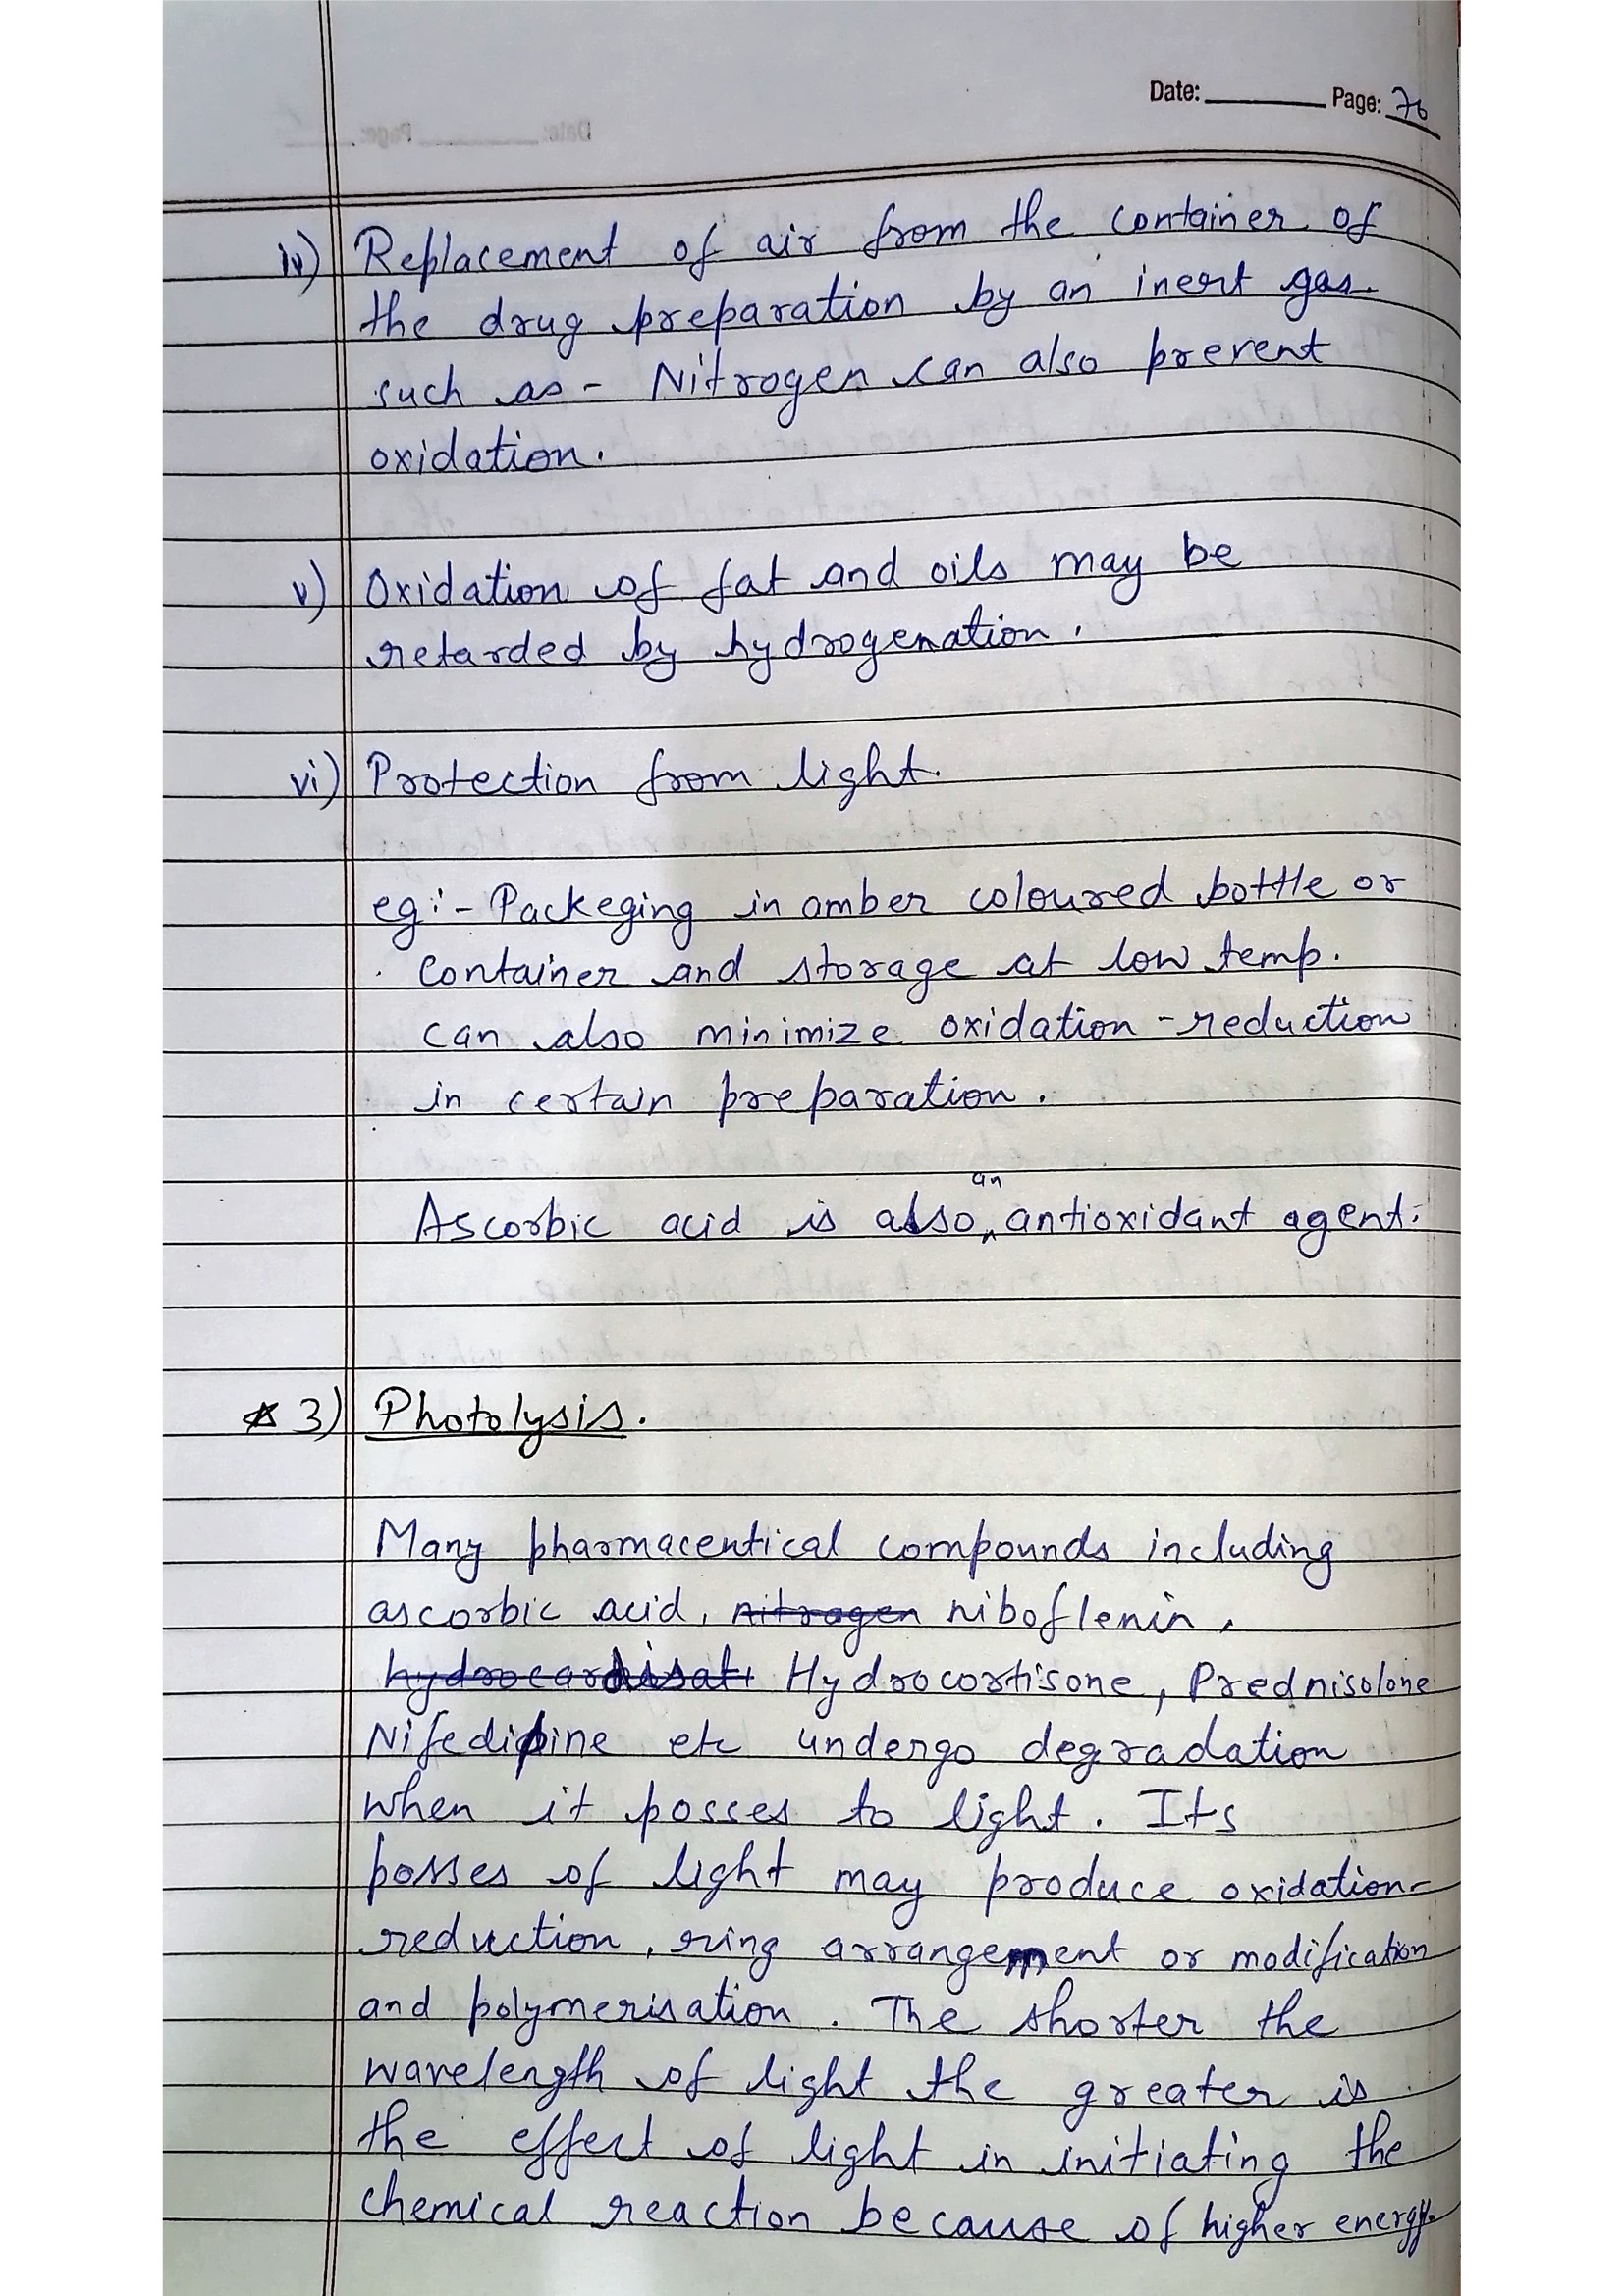 Date: Page: 76
iv) Replacement of air from the container of
the drug preparation by an inert gas.
such as - Nitrogen can also prevent
oxidation.
v) Oxidation of fat and oils may be
retarded by hydrogenation.
vi) Protection from light.
eg:- Packeging in amber coloured bottle or
container and storage at low temp.
can also minimize oxidation-reduction
in certain preparation.
Ascorbic acid is also an antioxidant agent.
* 3) Photolysis.
Many pharmaceutical compounds including
ascorbic acid, nitrogen riboflenin,
Hydrocortisone, Prednisolone
Nifedipine etc undergo degradation
when it posses to light. Its
posses of light may produce oxidation-
reduction, ring arrangement or modification
and polymerisation. The shorter the
wavelength of light the greater is
the effect of light in initiating the
chemical reaction because of higher energy.